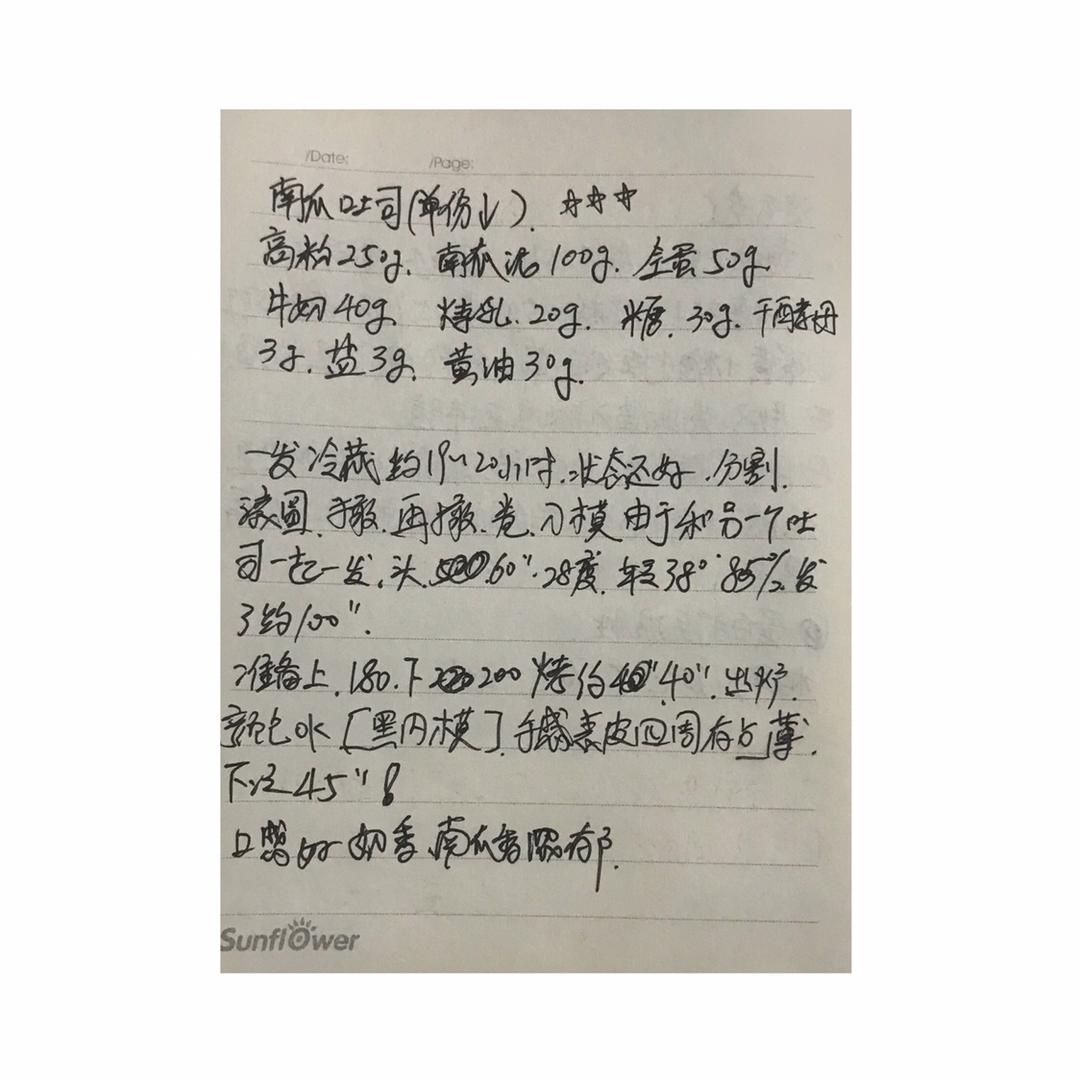 /Date: /Page:
南瓜吐司(单份↓). ☆☆☆
高粉250g. 南瓜泥100g. 全蛋50g.
牛奶40g. 炼乳.20g. 糖.30g.干酵母
3g.盐3g. 黄油30g.
一发冷藏约19~20小时.状态还好.分割.
滚圆.擀.再擀.卷.入模由于和另一个吐
司一起一发,头.60".28度. 38° 85%.发
了约100".
准备上.180.下200烤约40".出炉.
颜色ok[黑内模].手感表皮四周有点薄.
下次45"!
口感好 奶香.南瓜香浓郁.
Sunflower